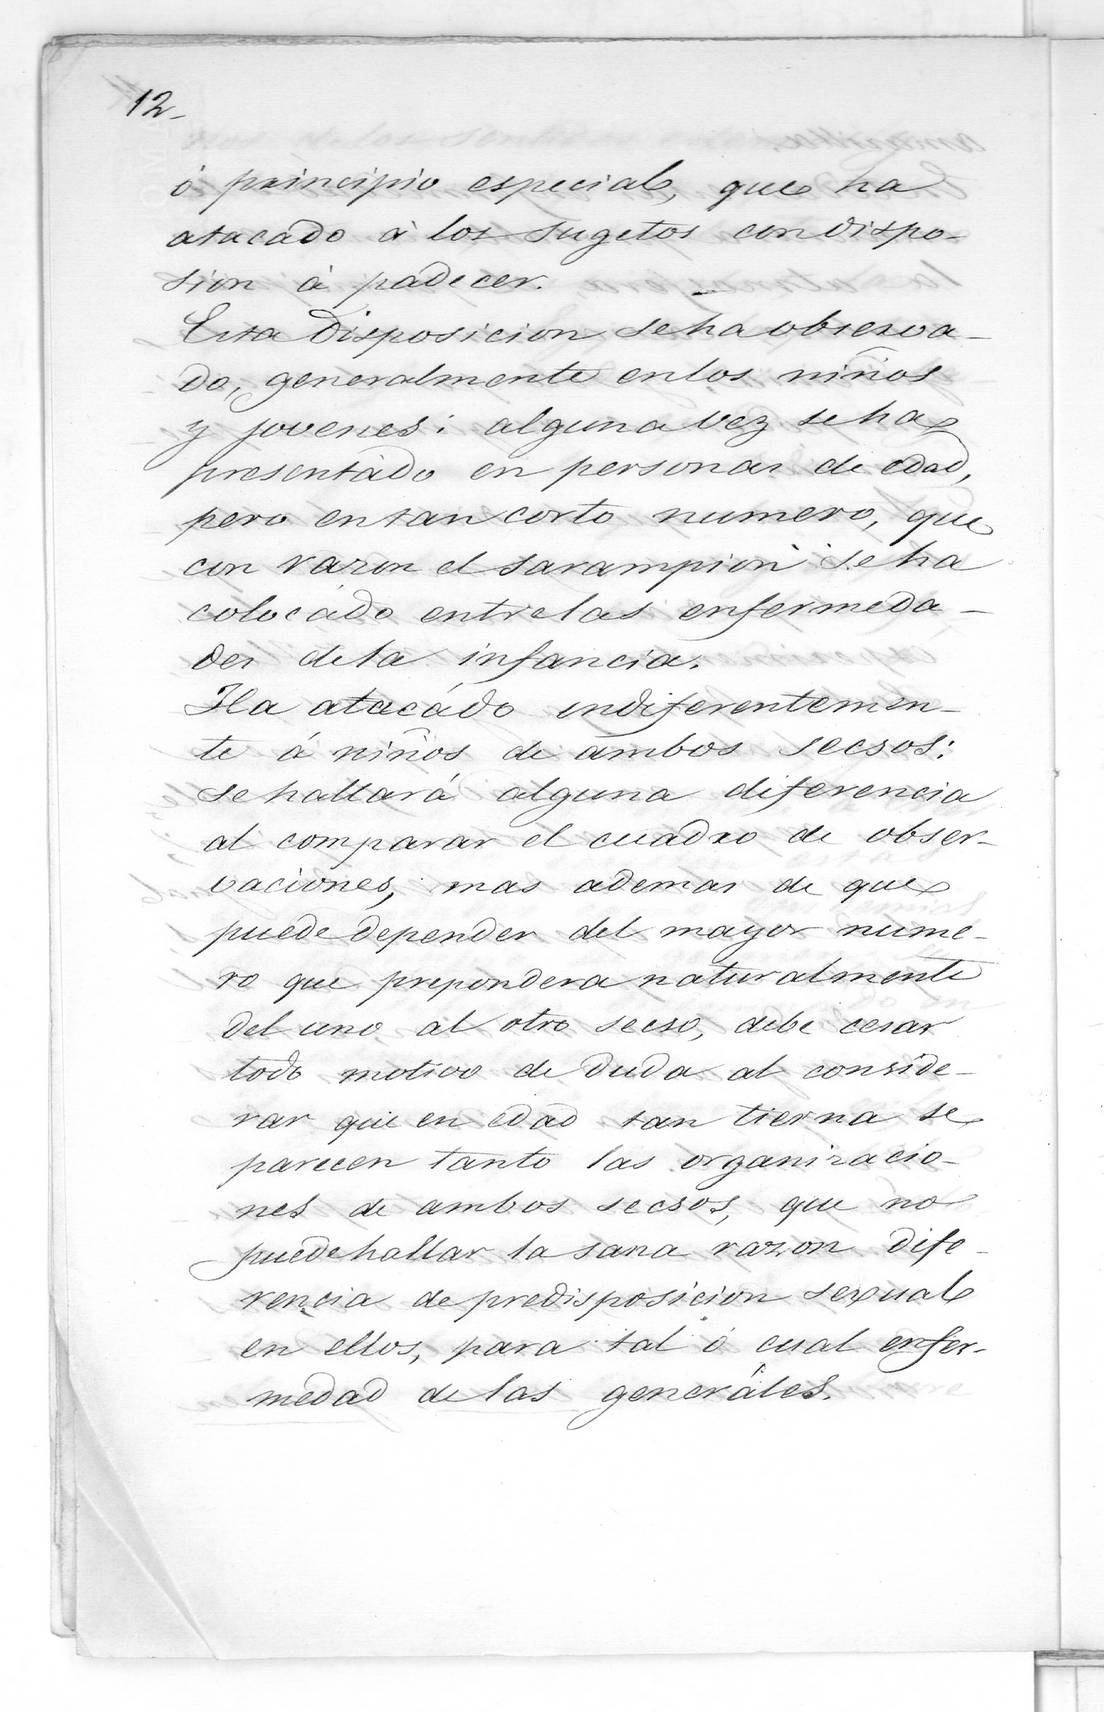 12-
ó principio especial, que ha
atacado á los sugetos con dispo-
sion á padecer.
Esta disposicion se ha observa-
do, generalmente en los niños
y jovenes: alguna vez se ha
presentado en personas de edad,
pero en tan corto numero, que
con razon el sarampion se ha
colocádo entre las enfermeda-
des de la infancia.
Ha atacádo indiferentemen-
te á niños de ambos secsos:
se hallará alguna diferencia
al comparar el cuadro de obser-
vaciones, mas ademas de que
puede depender del mayor nume-
ro que prepondera naturalmente
del uno al otro secso, debe cesar
todo motivo de duda al conside-
rar que en edad tan tierna se
parecen tanto las organizacio-
nes de ambos secsos, que no
puede hallar la sana razon dife-
rencia de predisposicion sexual
en ellos, para tal ó cual enfer-
medad de las generáles.